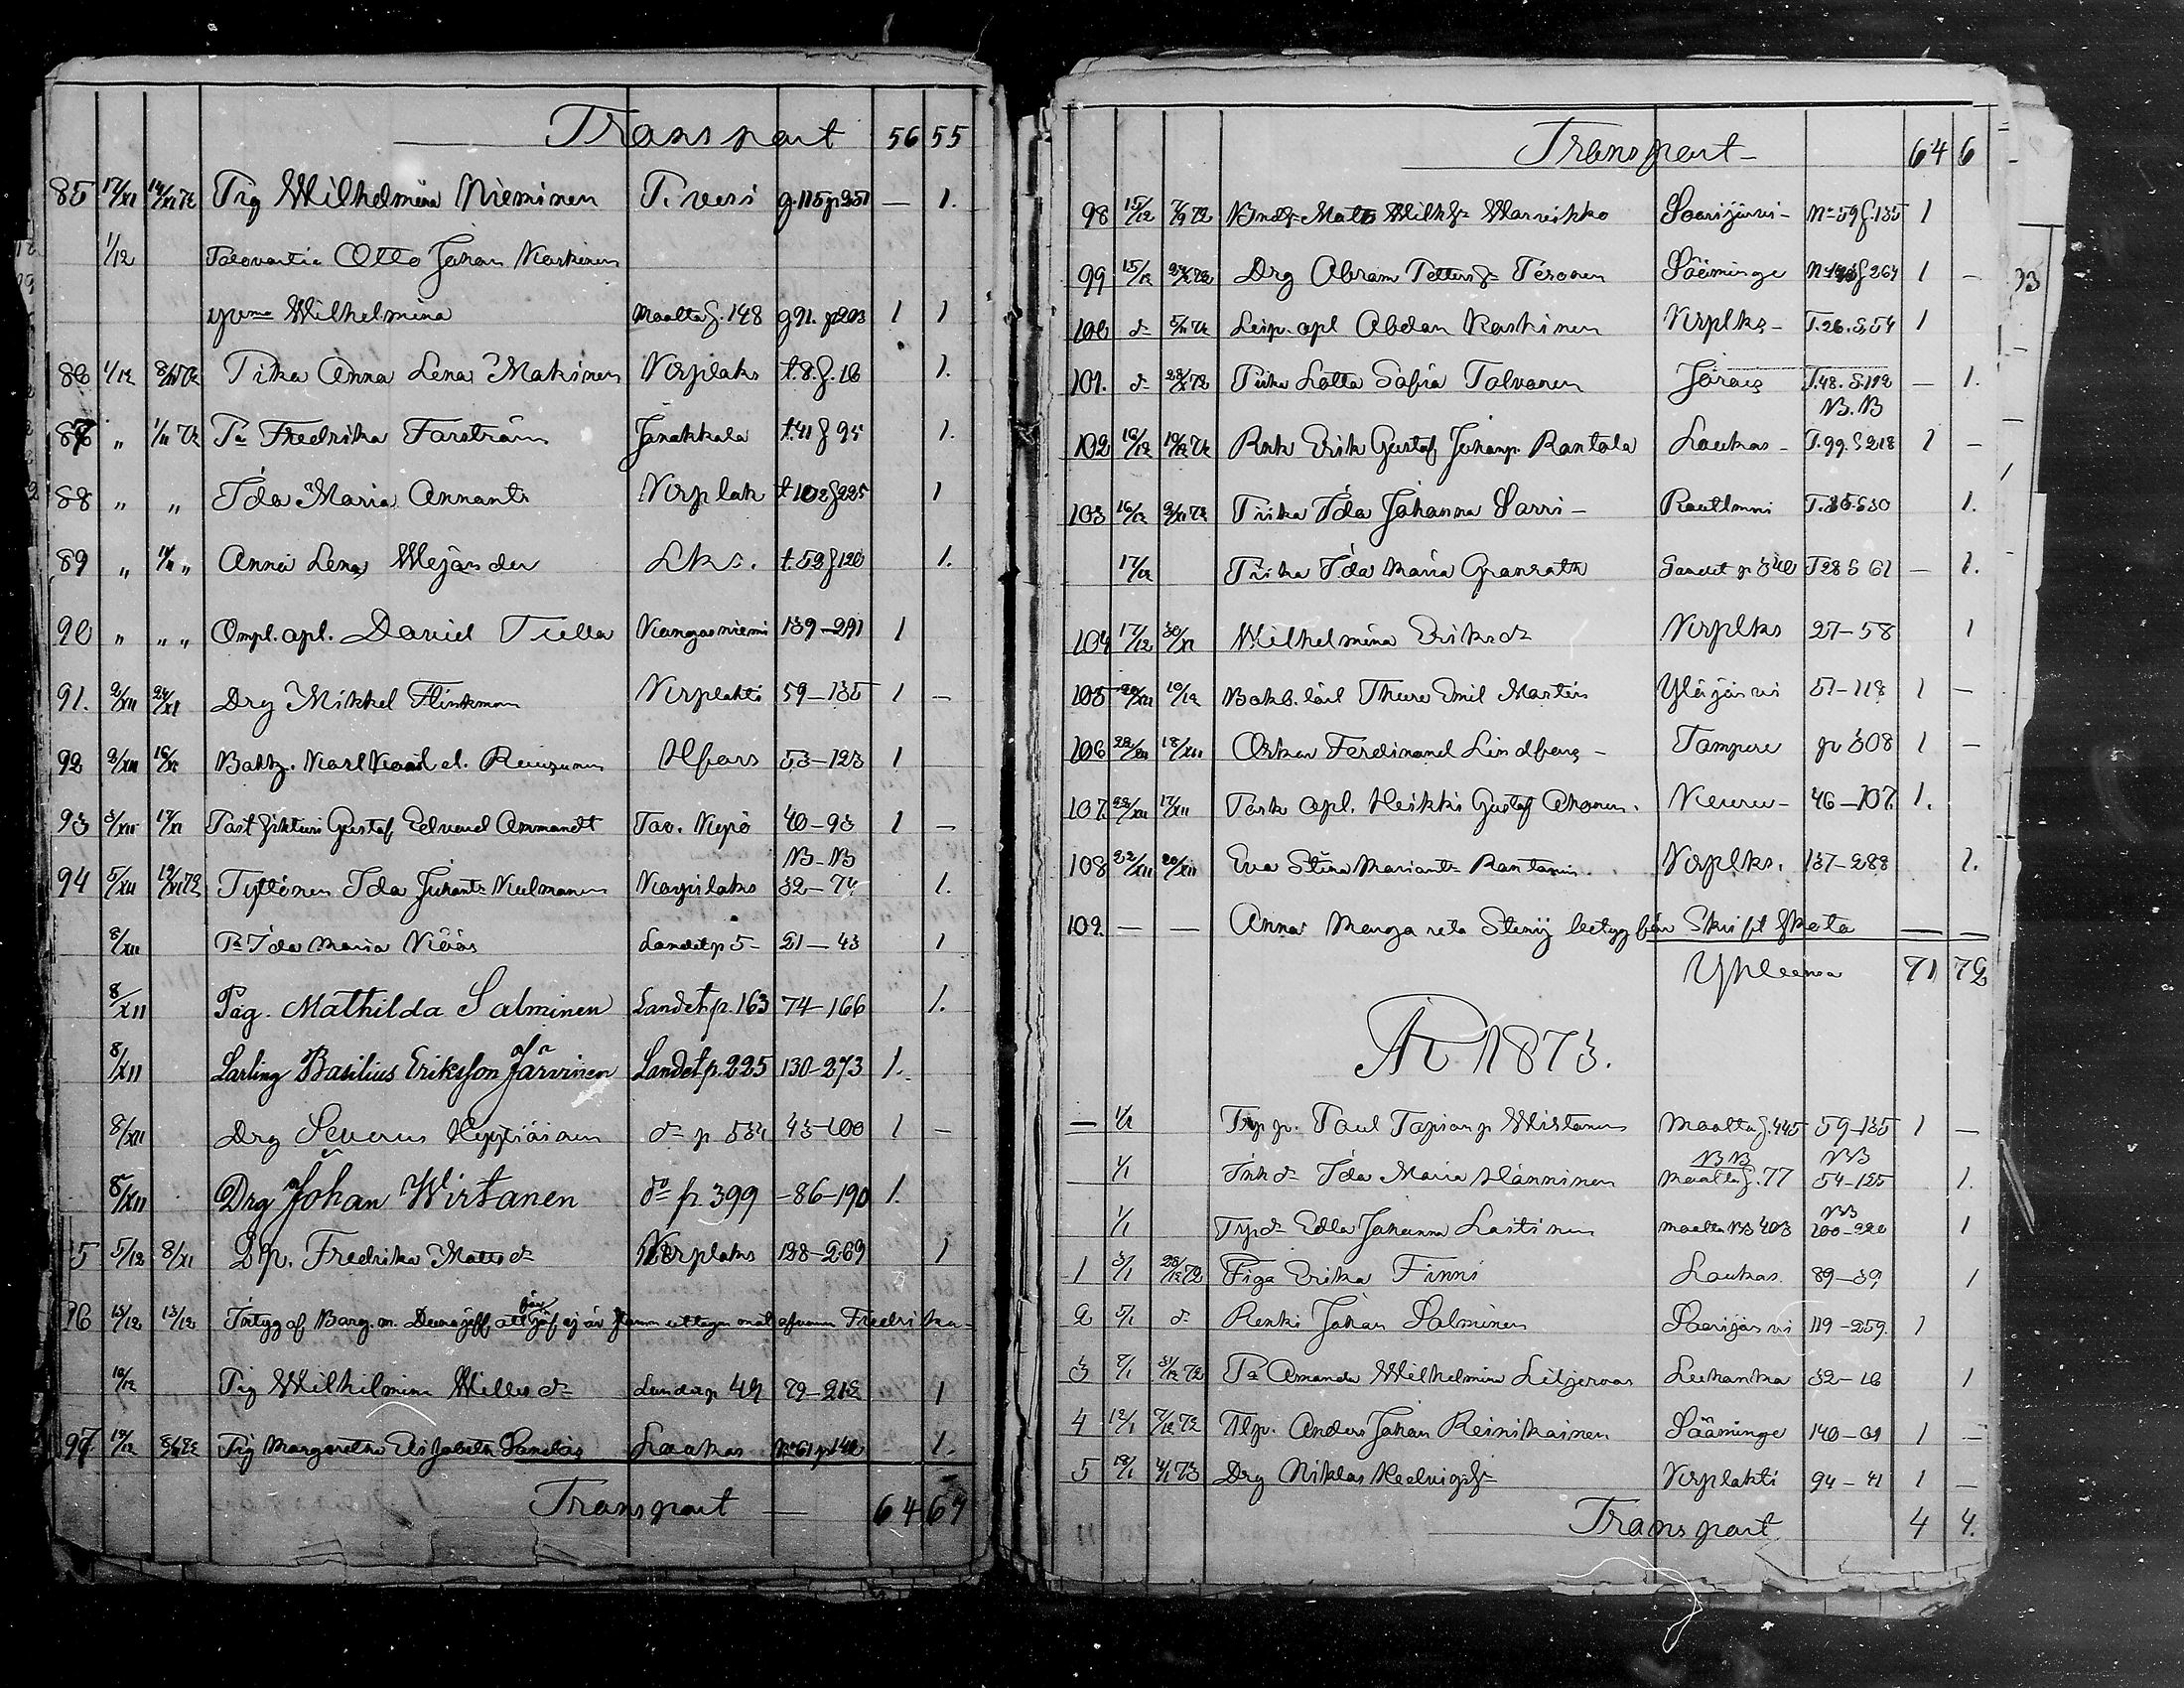 Transport 56 55
85 17/XI 14/XI 72 Pig Wilhelmina Nieminen P. vesi g. 115 p 251 — 1.
1/12 Talovartia Otto Johan Koskinen
Wilhelmina Maalta S. 148 g 91. p 203 1 1
86 1/12 Piika Anna Lena Makinen Korpilaks t. 8. S. 16 1.
87 " 1/11 72 Pa Fredrika Farström Janakkala t. 41 S 95 1.
88 " " Ida Maria Annantr Korplak t. 102 S 225 1
89 " " Anna Lena Mejander Lks. t. 52 S 120 1.
90 " " " Ompl. apl. David Tulla Kangasniemi 139-291 1
91. 2/XII 24/XI Drg Mikkel Flinkman Korplakti 59-135 1 —
92 2/XII 16/XI Karl Hfors 53-123 1
93 3/XII 17/XI Gustaf Edvard Ammondt Tav. Kyrö 40-93 1 —
94 5/XII 19/XI 72 Tyttönen Ida Juhantr Kulmanen Korpilaks B-B 32-74 1.
8/XII Pa Ida Maria Kääs Landet p 5- 21-43 1
8/XII Pig. Mathilda Salminen Landet p. 163 74-166 1.
8/XII Larling Basilius Eriksson Järvinen Landet p. 225 130-273 1.
8/XII Drg Severus Heppiäinen do p 534 43-100 1 —
8/XII Drg Johan Wirtanen do p. 399 -86-190 1.
5 5/12 8/XI Fredrika Matts dr Korplaks 128-269 1
96 13/12 13/12 Intyg af Barg. m. att ej är uttagen Fredrika
10/12 Pig Wilhelmina Willes dr Landet p 49 79-212 1
97. 12/12 Pig Margaretha Elisabeth Sandås Laukas No 61 p 142 1.
Transport — 64 67
Transport — 64 6
98 15/12 7/9 72 Matts Wilh. Warvikko Saarijärvi- No 59 S. 135 1
99 15/12 Drg Abram Petters Tesonen Sääminge S 264 1 —
100 d- 5/11 72 Leip. apl Abdan Koskinen Korplks- T. 26. S. 54 1
101. d- 28/X 72 Piika Lotta Sofia Tolvanen Jorois T. 48. S. 112 — 1.
B. B
102 16/12 10/12 72 Renk Erik Gustaf Juhanp. Rantala Laukas- T. 99. S 218 1 —
103 16/12 9/XI 72 Piika Ida Johanna Sarri- Rautlmni T. 15. S 30 1.
17/12 Piika Ida Maria Granrath Landet p 340 T 28 S 61 — 1.
104 17/12 30/XI Wilhelmina Eriks dr Korplks 27-58 1
105 20/XII 10/12 Thure Emil Martin Ylöjärvi 51-118 1 —
106 22/XII 18/XII Oskar Ferdinand Lindberg- Tampere p 308 1 —
107. 22/XII 17/XII apl. Heikki Gustaf Ahonen. Keuru- 46-107. 1.
108 22/XII 20/XII Eva Stina Mariantr Rantanen. Korplks. 137-288 1.
109. — — Anna Margareta Stenij betyg för — —
Ypleensa 71 72
År 1873.
— 1/1 Paul Tapianp Wistanen Maalta S. 445 59-135 1 —
1/1 Ida Maria Hänninen BB Maalta S. 77 BB 54-125 1.
1/1 Edla Johanna Laitinen maalta BB 403 BB 100-220 1
1 3/1 28/12 72 Piga Erika Finni Laukas. 89-39 1
2 5/1 d- Renki Johan Salminen Saarijärvi 119-259. 1
3 7/1 31/12 72 Pa Amanda Wilhelmina Liljeroos Luhanka 32-16 1
4 12/1 7/12 72 Tlp. Anders Johan Reinikainen Sääminge 140-61 1 —
5 18/1 4/1 73 Drg Niklas Hedvigs Korplakti 94-41 1 —
Transport 4 4.